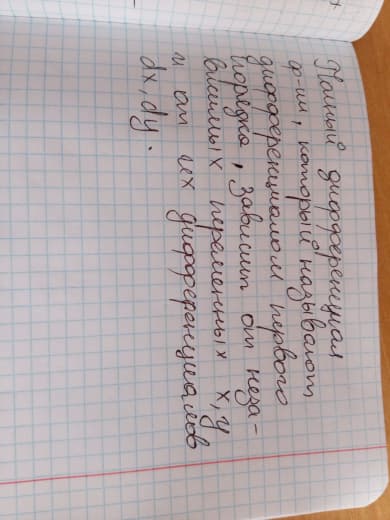 Полный дифференциал
ф-ии, который называют
дифференциалом первого
порядка, зависит от неза-
висимых переменных x, y
и от их дифференциалов
dx, dy.